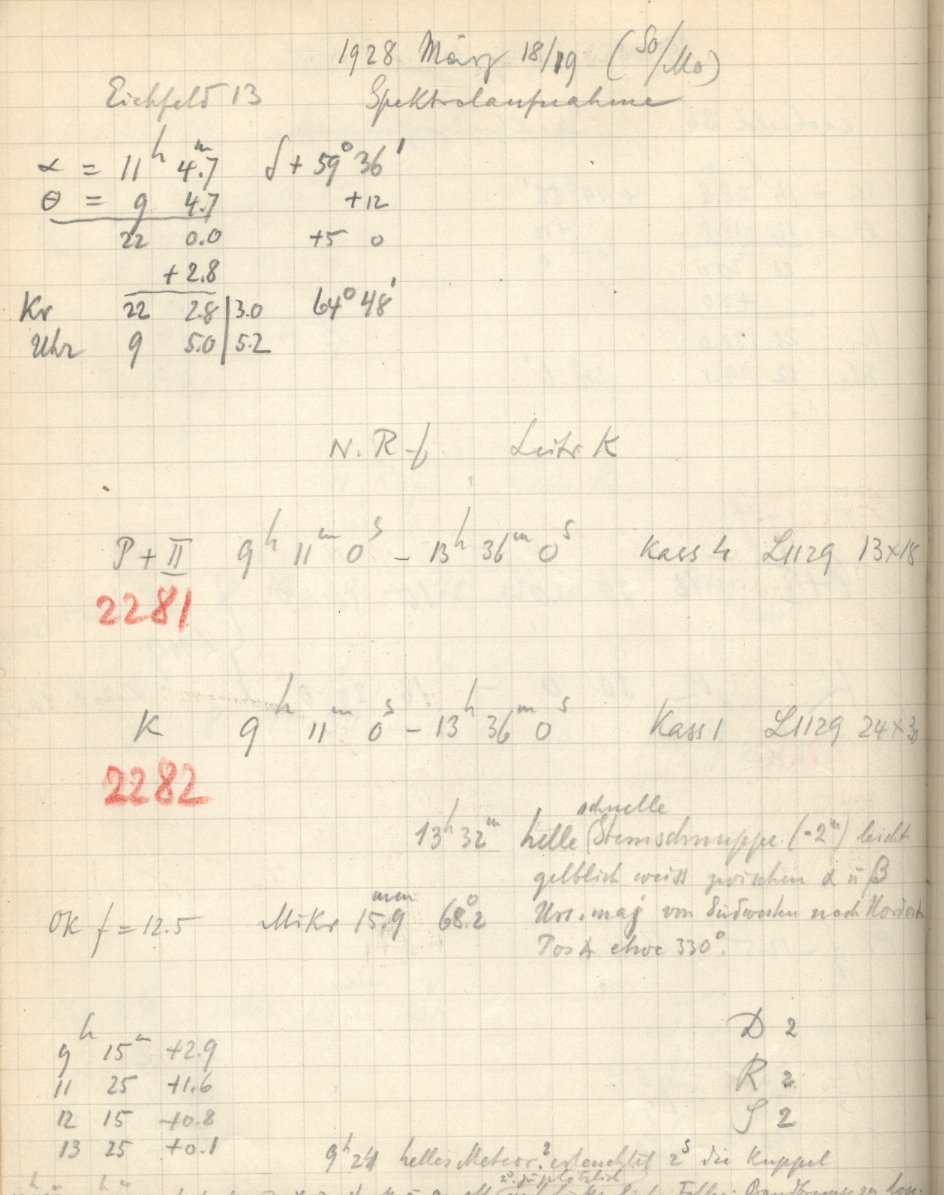 1928 März 18/19 (So/Mo)
Eichfeld 13 Spektralaufnahme
α = 11h 4.7m δ + 59° 36'
θ = 9 4.7 +12
22 0.0 +5 0
+2.8
Kr 22 2.8 | 3.0 64° 48'
Uhr 9 5.0 | 5.2
N. R-f Leitr K
P + II 9h 11m 0s – 13h 36m 0s Kass 4 L1129 13×18
2281
K 9h 11m 0s – 13h 36m 0s Kass 1 L1129 24×30
2282
13h 32m helle schnelle Sternschnuppe (-2m) leicht
gelblich weiss zwischen α u β
OK f = 12.5 Mikr 15.9 mm 68.2° Urs. maj von Südwesten nach Nordost
Pos ∡ etwa 330°.
D 2
9h 15m +2.9
R 2
11 25 +1.6
12 15 +0.8
S 2
13 25 +0.1
9h 24 helles Meteor? erleuchtet 2s die Kuppel